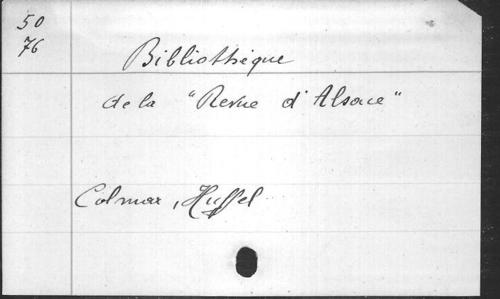 50
76
Bibliothèque
de la "Revue d'Alsace"
Colmar, Hüffel